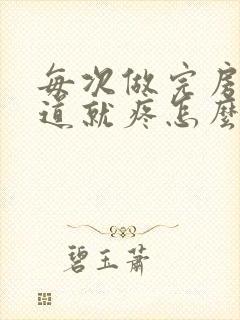 每次做完房
道就疼怎麼
碧玉蕭